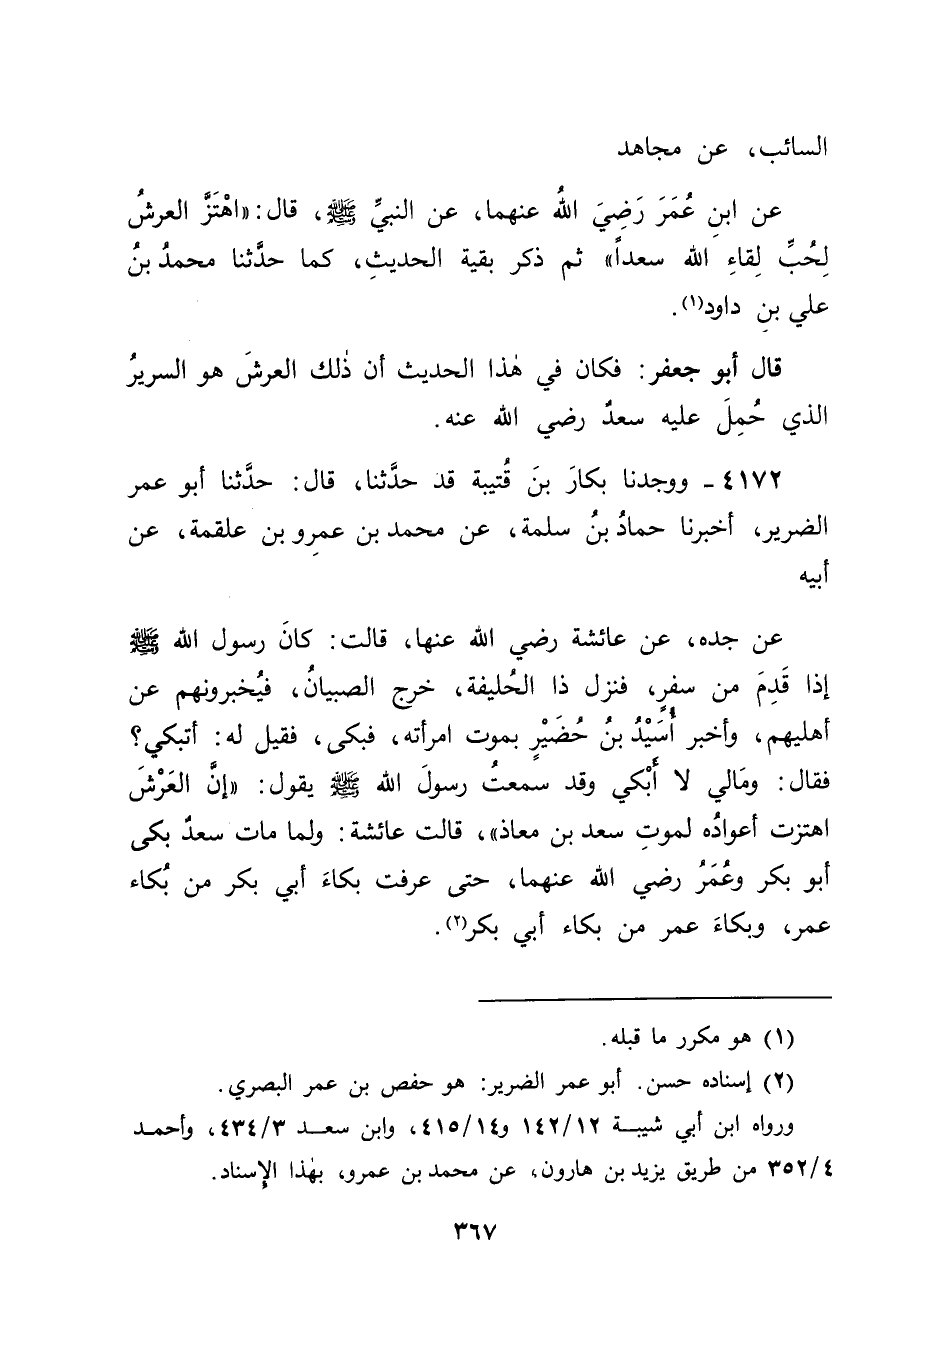 السائب، عن مجاهد
عن ابنِ عُمَرَ رَضِيَ اللهُ عنهما، عن النبيِّ ﷺ، قال: «اهْتَزَّ العرشُ
لِحُبِّ لِقاءِ الله سعداً» ثم ذكر بقية الحديثِ، كما حدَّثنا محمدُ بنُ
علي بنِ داود(١).
قال أبو جعفر: فكان في هٰذا الحديث أن ذٰلك العرشَ هو السريرُ
الذي حُمِلَ عليه سعدٌ رضي الله عنه.
٤١٧٢ - ووجدنا بكارَ بنَ قُتيبة قد حدَّثنا، قال: حدَّثنا أبو عمر
الضرير، أخبرنا حمادُ بنُ سلمة، عن محمد بن عمرِو بن علقمة، عن
أبيه
عن جده، عن عائشة رضي الله عنها، قالت: كانَ رسول الله ﷺ
إذا قَدِمَ من سفرٍ، فنزل ذا الحُليفة، خرج الصبيانُ، فيُخبرونهم عن
أهليهم، وأخبر أُسَيْدُ بنُ حُضَيْرٍ بموت امرأته، فبكى، فقيل له: أتبكي؟
فقال: ومَالي لا أَبْكي وقد سمعتُ رسولَ الله ﷺ يقول: «إنَّ العَرْشَ
اهتزت أعوادُه لموتِ سعد بن معاذ»، قالت عائشة: ولما مات سعدٌ بكى
أبو بكر وعُمَرُ رضي الله عنهما، حتى عرفت بكاءَ أبي بكر من بُكاء
عمر، وبكاءَ عمر من بكاء أبي بكر(٢).
(١) هو مكرر ما قبله.
(٢) إسناده حسن. أبو عمر الضرير: هو حفص بن عمر البصري.
ورواه ابن أبي شيبة ١٤٢/١٢ و٤١٥/١٤، وابن سعد ٤٣٤/٣، وأحمد
٣٥٢/٤ من طريق يزيد بن هارون، عن محمد بن عمرو، بهٰذا الإسناد.
٣٦٧